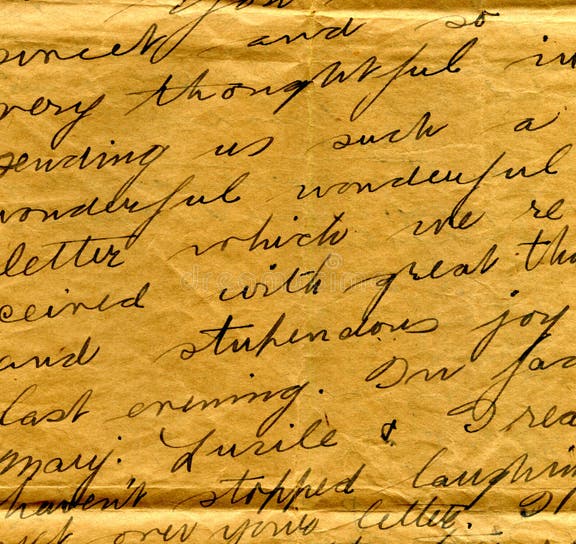 you
sweet and so
very thoughtful in
sending us such a
wonderful wonderful
letter which we re
ceived with great tha
and stupendous joy
last evening. In fac
Mary. Lucile & I rea
haven't stopped laughin
yet over your letter. I